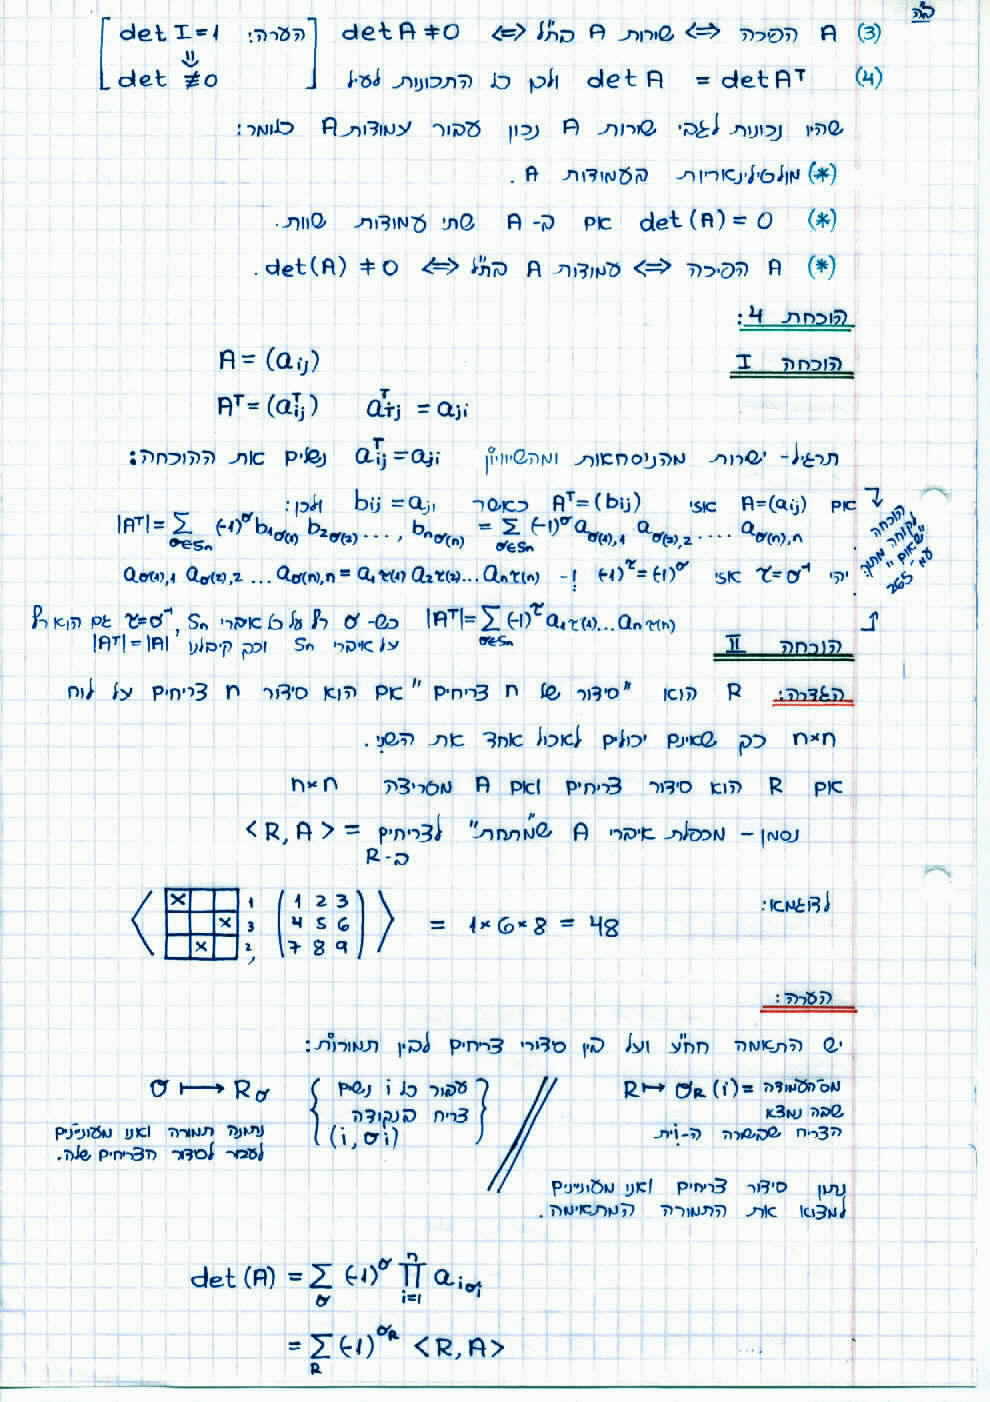 ב"ה
(3) A הפיכה ⇔ שורות A בת"ל ⇔ det A ≠ 0 [הערה: det I = 1 ⇓ det ≢ 0]
(4) det A = det Aᵀ ולכן כל התכונות לעיל
שהיו נכונות לגבי שורות A נכון עבור עמודות A כלומר:
(*) מולטילינאריות העמודות A.
(*) det(A) = 0 אם ב- A שתי עמודות שוות.
(*) A הפיכה ⇔ עמודות A בת"ל ⇔ det(A) ≠ 0.
הוכחת 4:
הוכחה I
A = (aij)
Aᵀ = (aᵀij) aᵀij = aji
תרגיל - ישרות מהניסחאות ומהשיוויון aᵀij = aji נשלים את ההוכחה:
אם A=(aij) אזי Aᵀ=(bij) כאשר bij = aji ולכן:
|Aᵀ| = ∑σ∈Sn (-1)^σ b1σ(1) b2σ(2) ..., bnσ(n) = ∑σ∈Sn (-1)^σ aσ(1),1 aσ(2),2 .... aσ(n),n
יהי τ=σ⁻¹ אזי (-1)^τ=(-1)^σ ו- ! aσ(1),1 aσ(2),2 ... aσ(n),n = a1τ(1) a2τ(2)... anτ(n)
|Aᵀ| = ∑σ∈Sn (-1)^τ a1τ(1)... anτ(n) כש- σ רץ על כל איברי Sn, τ=σ⁻¹ גם הוא רץ
על איברי Sn וכך קיבלנו |Aᵀ|=|A|
הוכחה לקוחה מתוך "שאום" עמ' 265
הוכחה II
הגדרה: R הוא "סידור של n צריחים" אם הוא סידור n צריחים על לוח
n×n כך שאינם יכולים לאכול אחד את השני.
אם R הוא סידור צריחים ואם A מטריצה n×n
נסמן - מכפלת איברי A ש"מתחת" לצריחים ב-R = <R,A>
לדוגמא:
⟨ X 1 X 3 X 2 , (1 2 3
4 5 6
7 8 9) ⟩ = 1×6×8 = 48
הערה:
יש התאמה חח"ע ועל בין סידורי צריחים לבין תמורות:
R ↦ σR(i) = מס' העמודה
שבה נמצא
הצריח שבשורה ה-i-ית
נתון סידור צריחים ואני מעוניינים
למצוא את התמורה המתאימה.
σ ↦ Rσ { עבור כל i נשים
צריח בנקודה
(i, σi) }
נתונה תמורה ואנו מעוניינים
לעבור לסדור הצריחים שלה.
det(A) = ∑σ (-1)^σ ∏ⁿi=1 aiσi
= ∑R (-1)^σR <R,A>